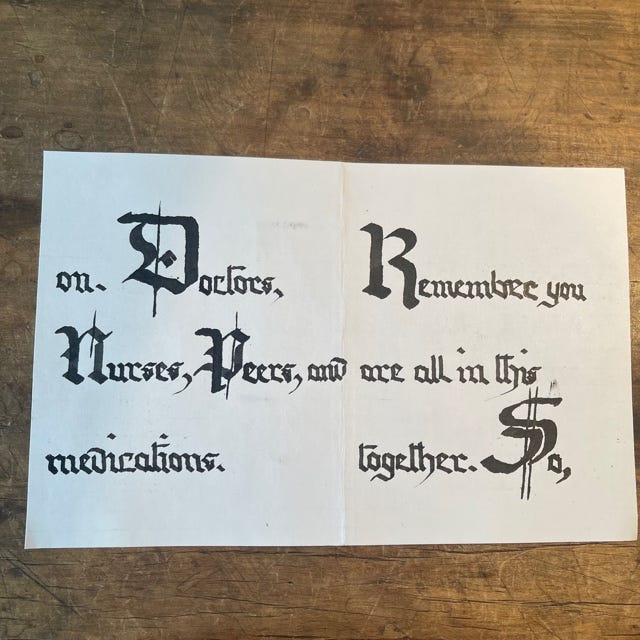 on. Doctors,
Nurses, Peers, and
medications.
Remember you
are all in this
together. So,